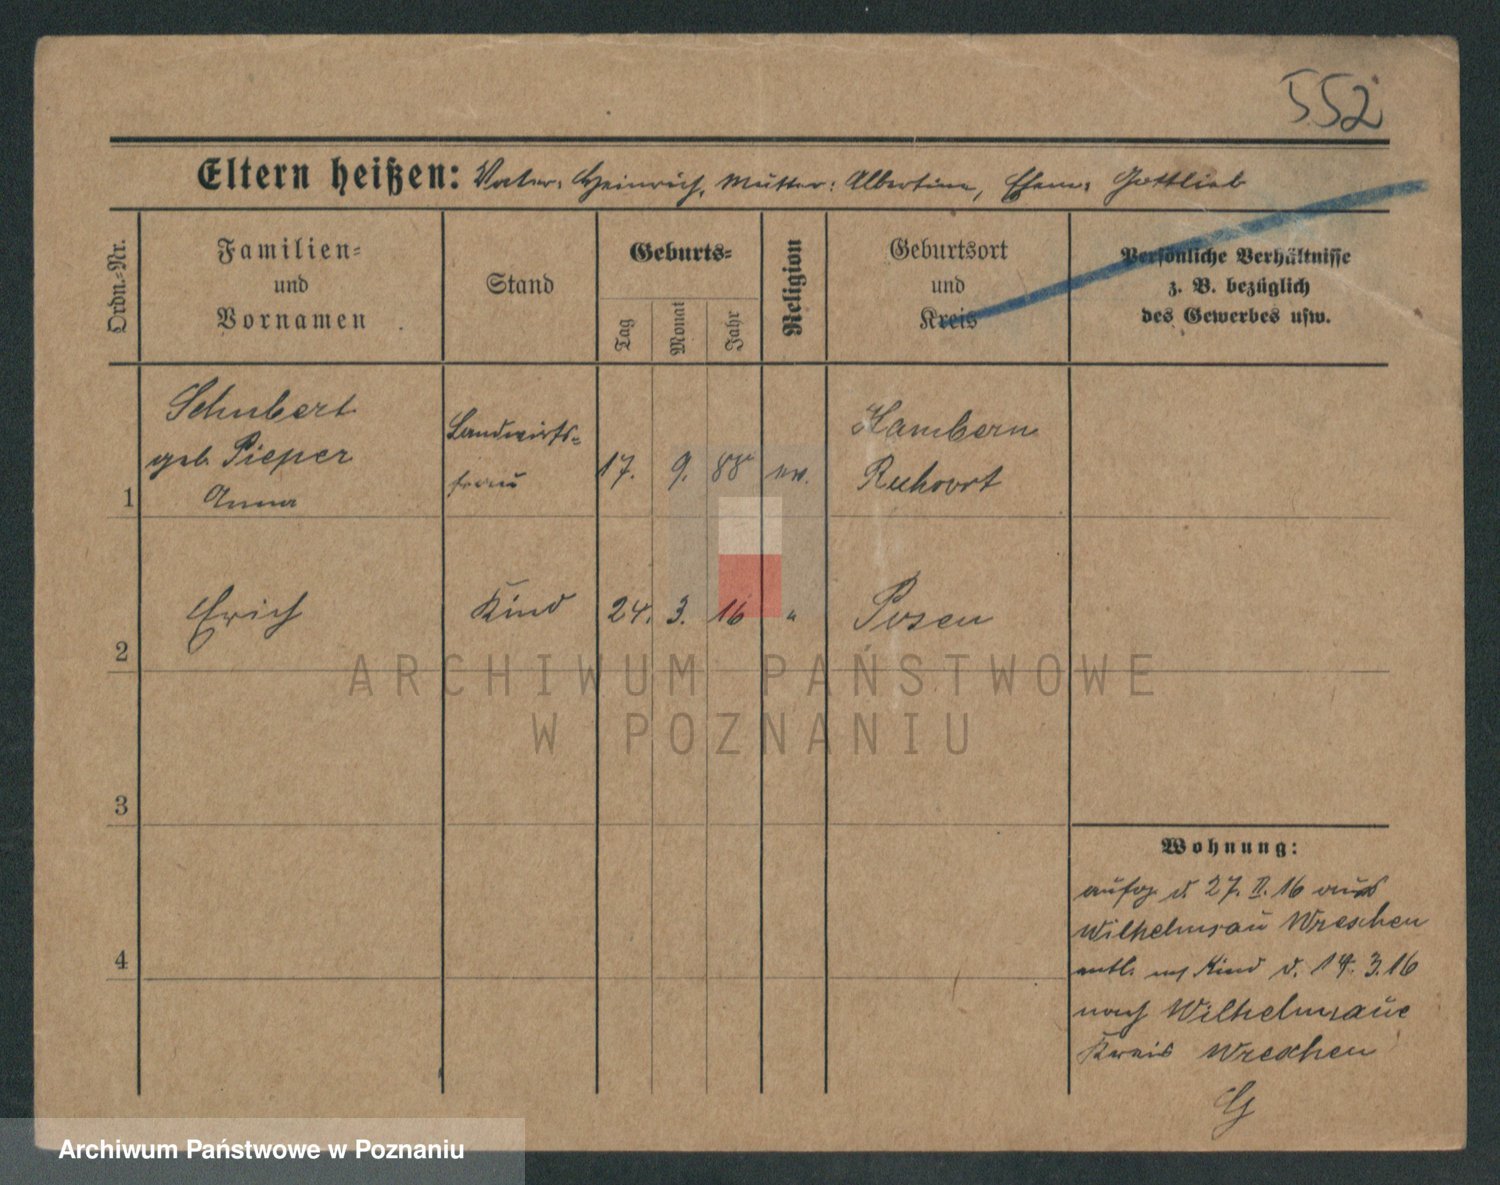 552
Eltern heißen: Vater: Heinrich, Mutter: Albertine, Ehem: Gottlieb
Ordn.-Nr.
Familien-
und
Vornamen
Stand
Geburts-
Tag
Monat
Jahr
Religion
Geburtsort
und
Kreis
Persönliche Verhältnisse
z. B. bezüglich
des Gewerbes usw.
1
Schubert
geb. Pieper
Anna
Landwirts-
frau
17. 9. 88 ev.
Hambern
Ruhrort
2
Erich
Kind
24. 3. 16 "
Posen
ARCHIWUM PAŃSTWOWE
W POZNANIU
3
4
Wohnung:
aufg. d. 27. II. 16 aus
Wilhelmsau Wreschen
entl. m Kind d. 14. 3. 16
nach Wilhelmsaue
Kreis Wreschen
Archiwum Państwowe w Poznaniu